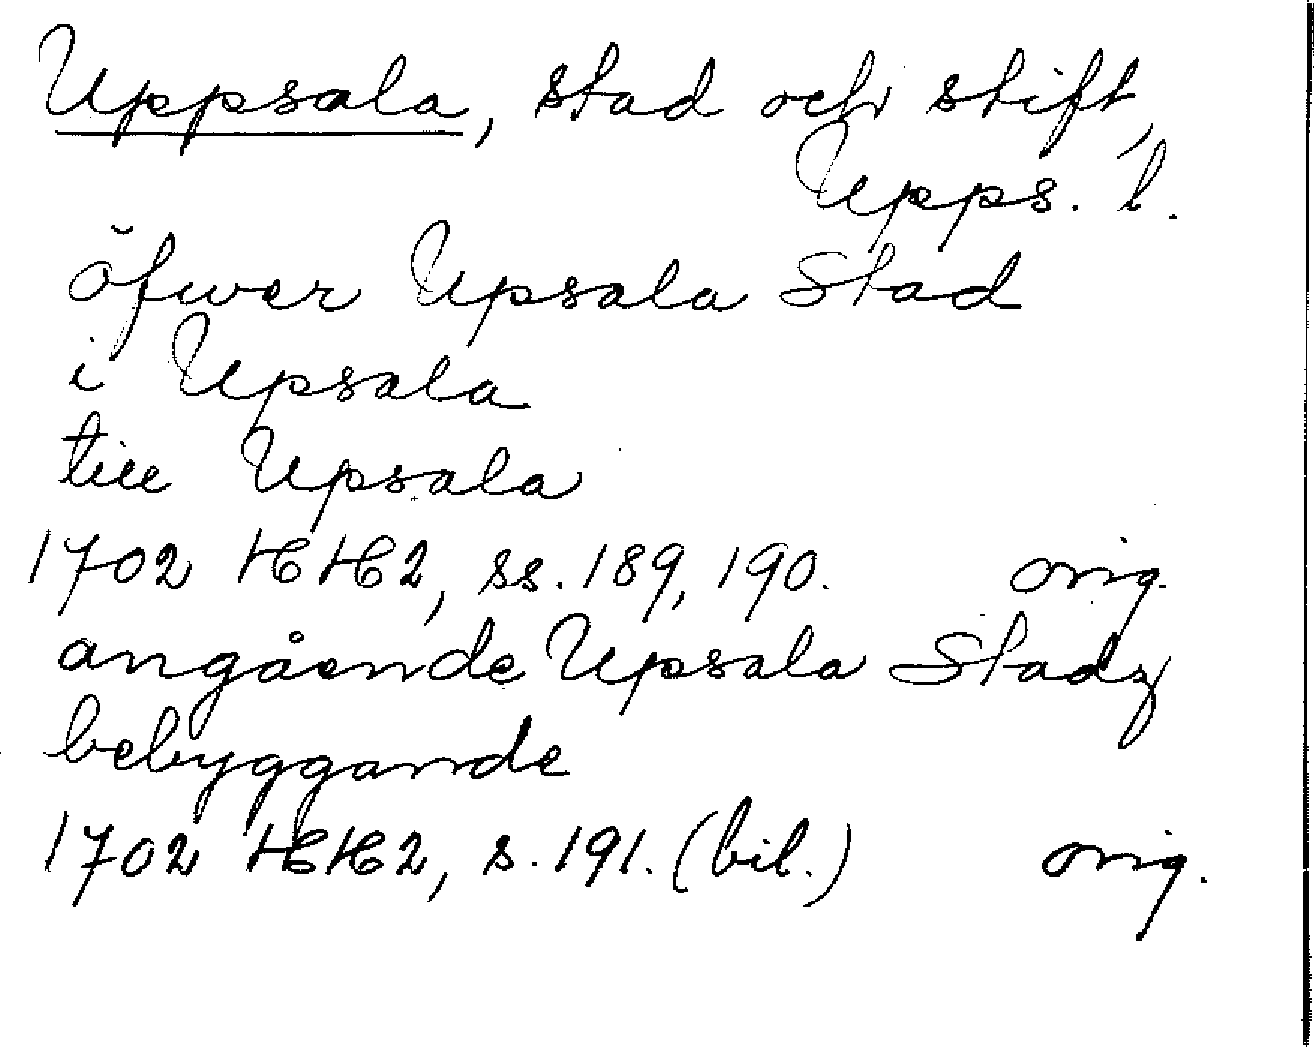 Uppsala, stad och stift,
Upps. l.
öfwer Upsala Stad
i Upsala
till Upsala
1702 HH2, ss. 189, 190. orig.
angående Upsala Stadz
bebyggande
1702 HH2, s. 191. (bil.) orig.